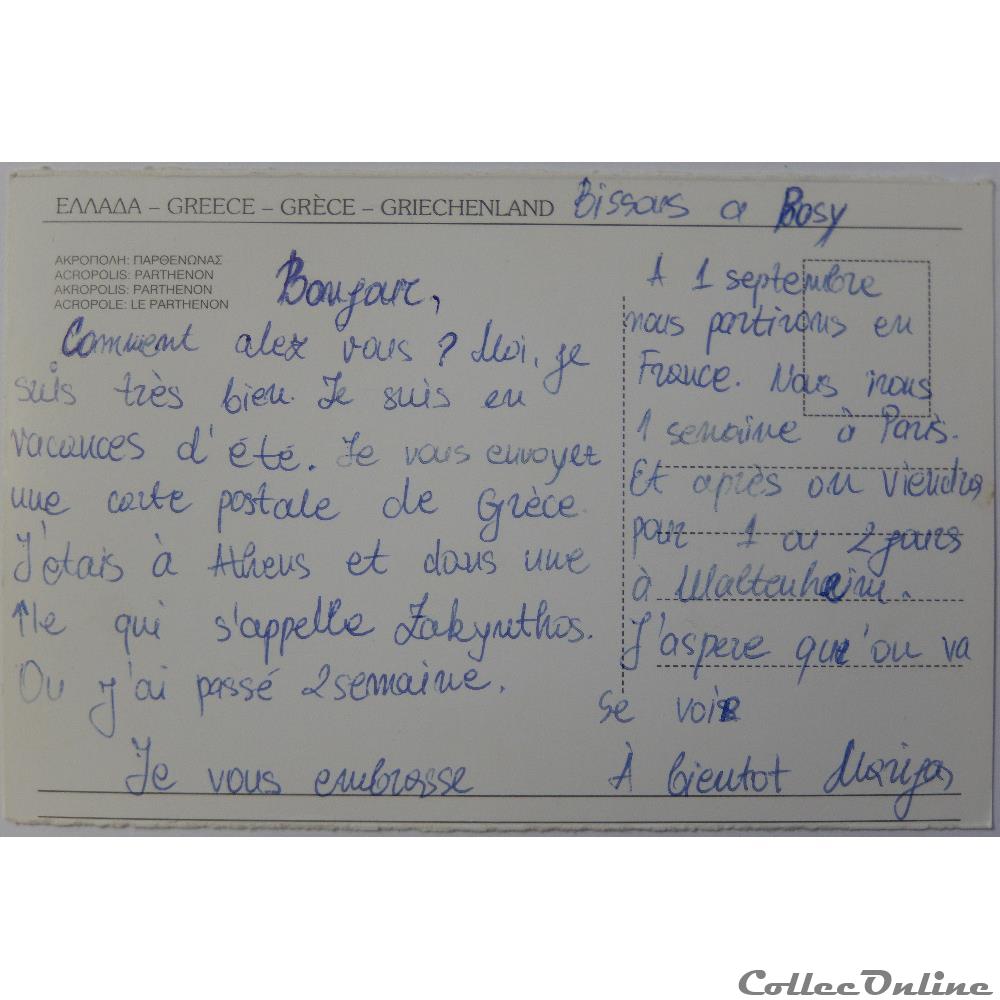 ΕΛΛΑΔΑ – GREECE – GRÈCE – GRIECHENLAND
Bissous a Rosy
ΑΚΡΟΠΟΛΗ: ΠΑΡΘΕΝΩΝΑΣ
ACROPOLIS: PARTHENON
AKROPOLIS: PARTHENON
ACROPOLE: LE PARTHENON
Bonjour,
Comment alez vous ? Moi, je
suis très bien. Je suis en
vacances d'été. Je vous envoyez
une carte postale de Grèce.
J'étais à Athens et dans une
île qui s'appelle Zakynthos.
Ou j'ai passé 2 semaine.
Je vous embrasse
A 1 septembre
nous partirons en
France. Nous irons
1 semaine à Paris.
Et après on viendra
pour 1 ou 2 jours
à Waltenheim.
J'aspere qu'on va
se voir
À bientot
CollecOnline